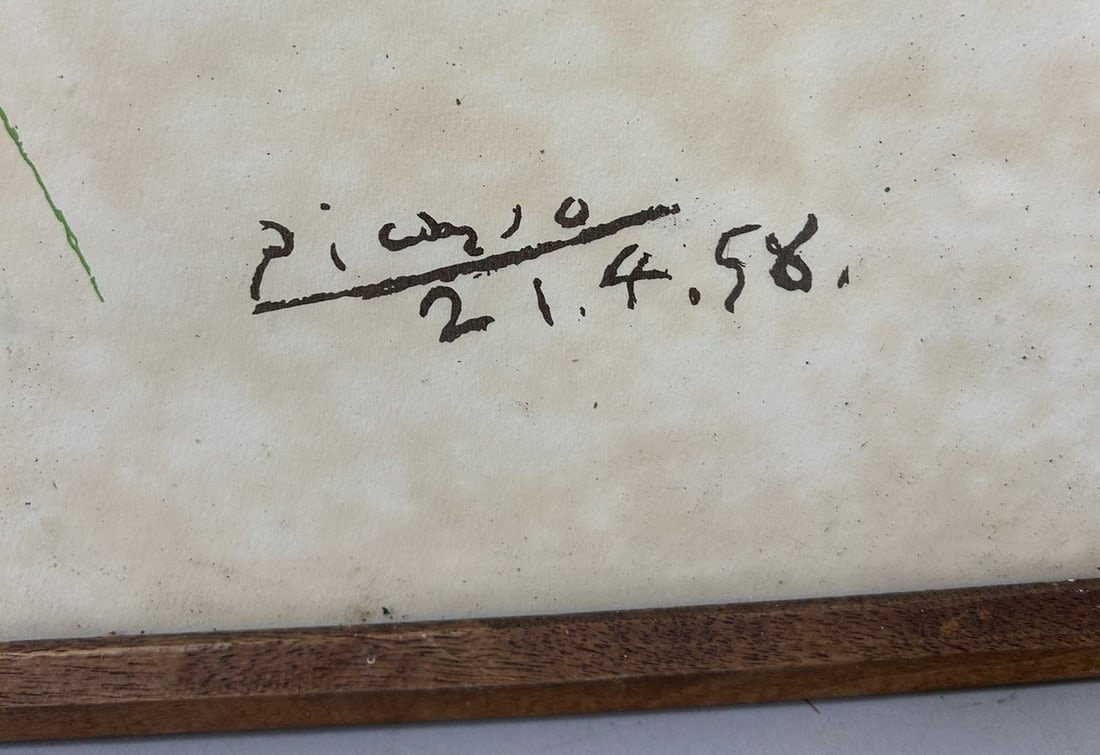 Picasso
21.4.58.